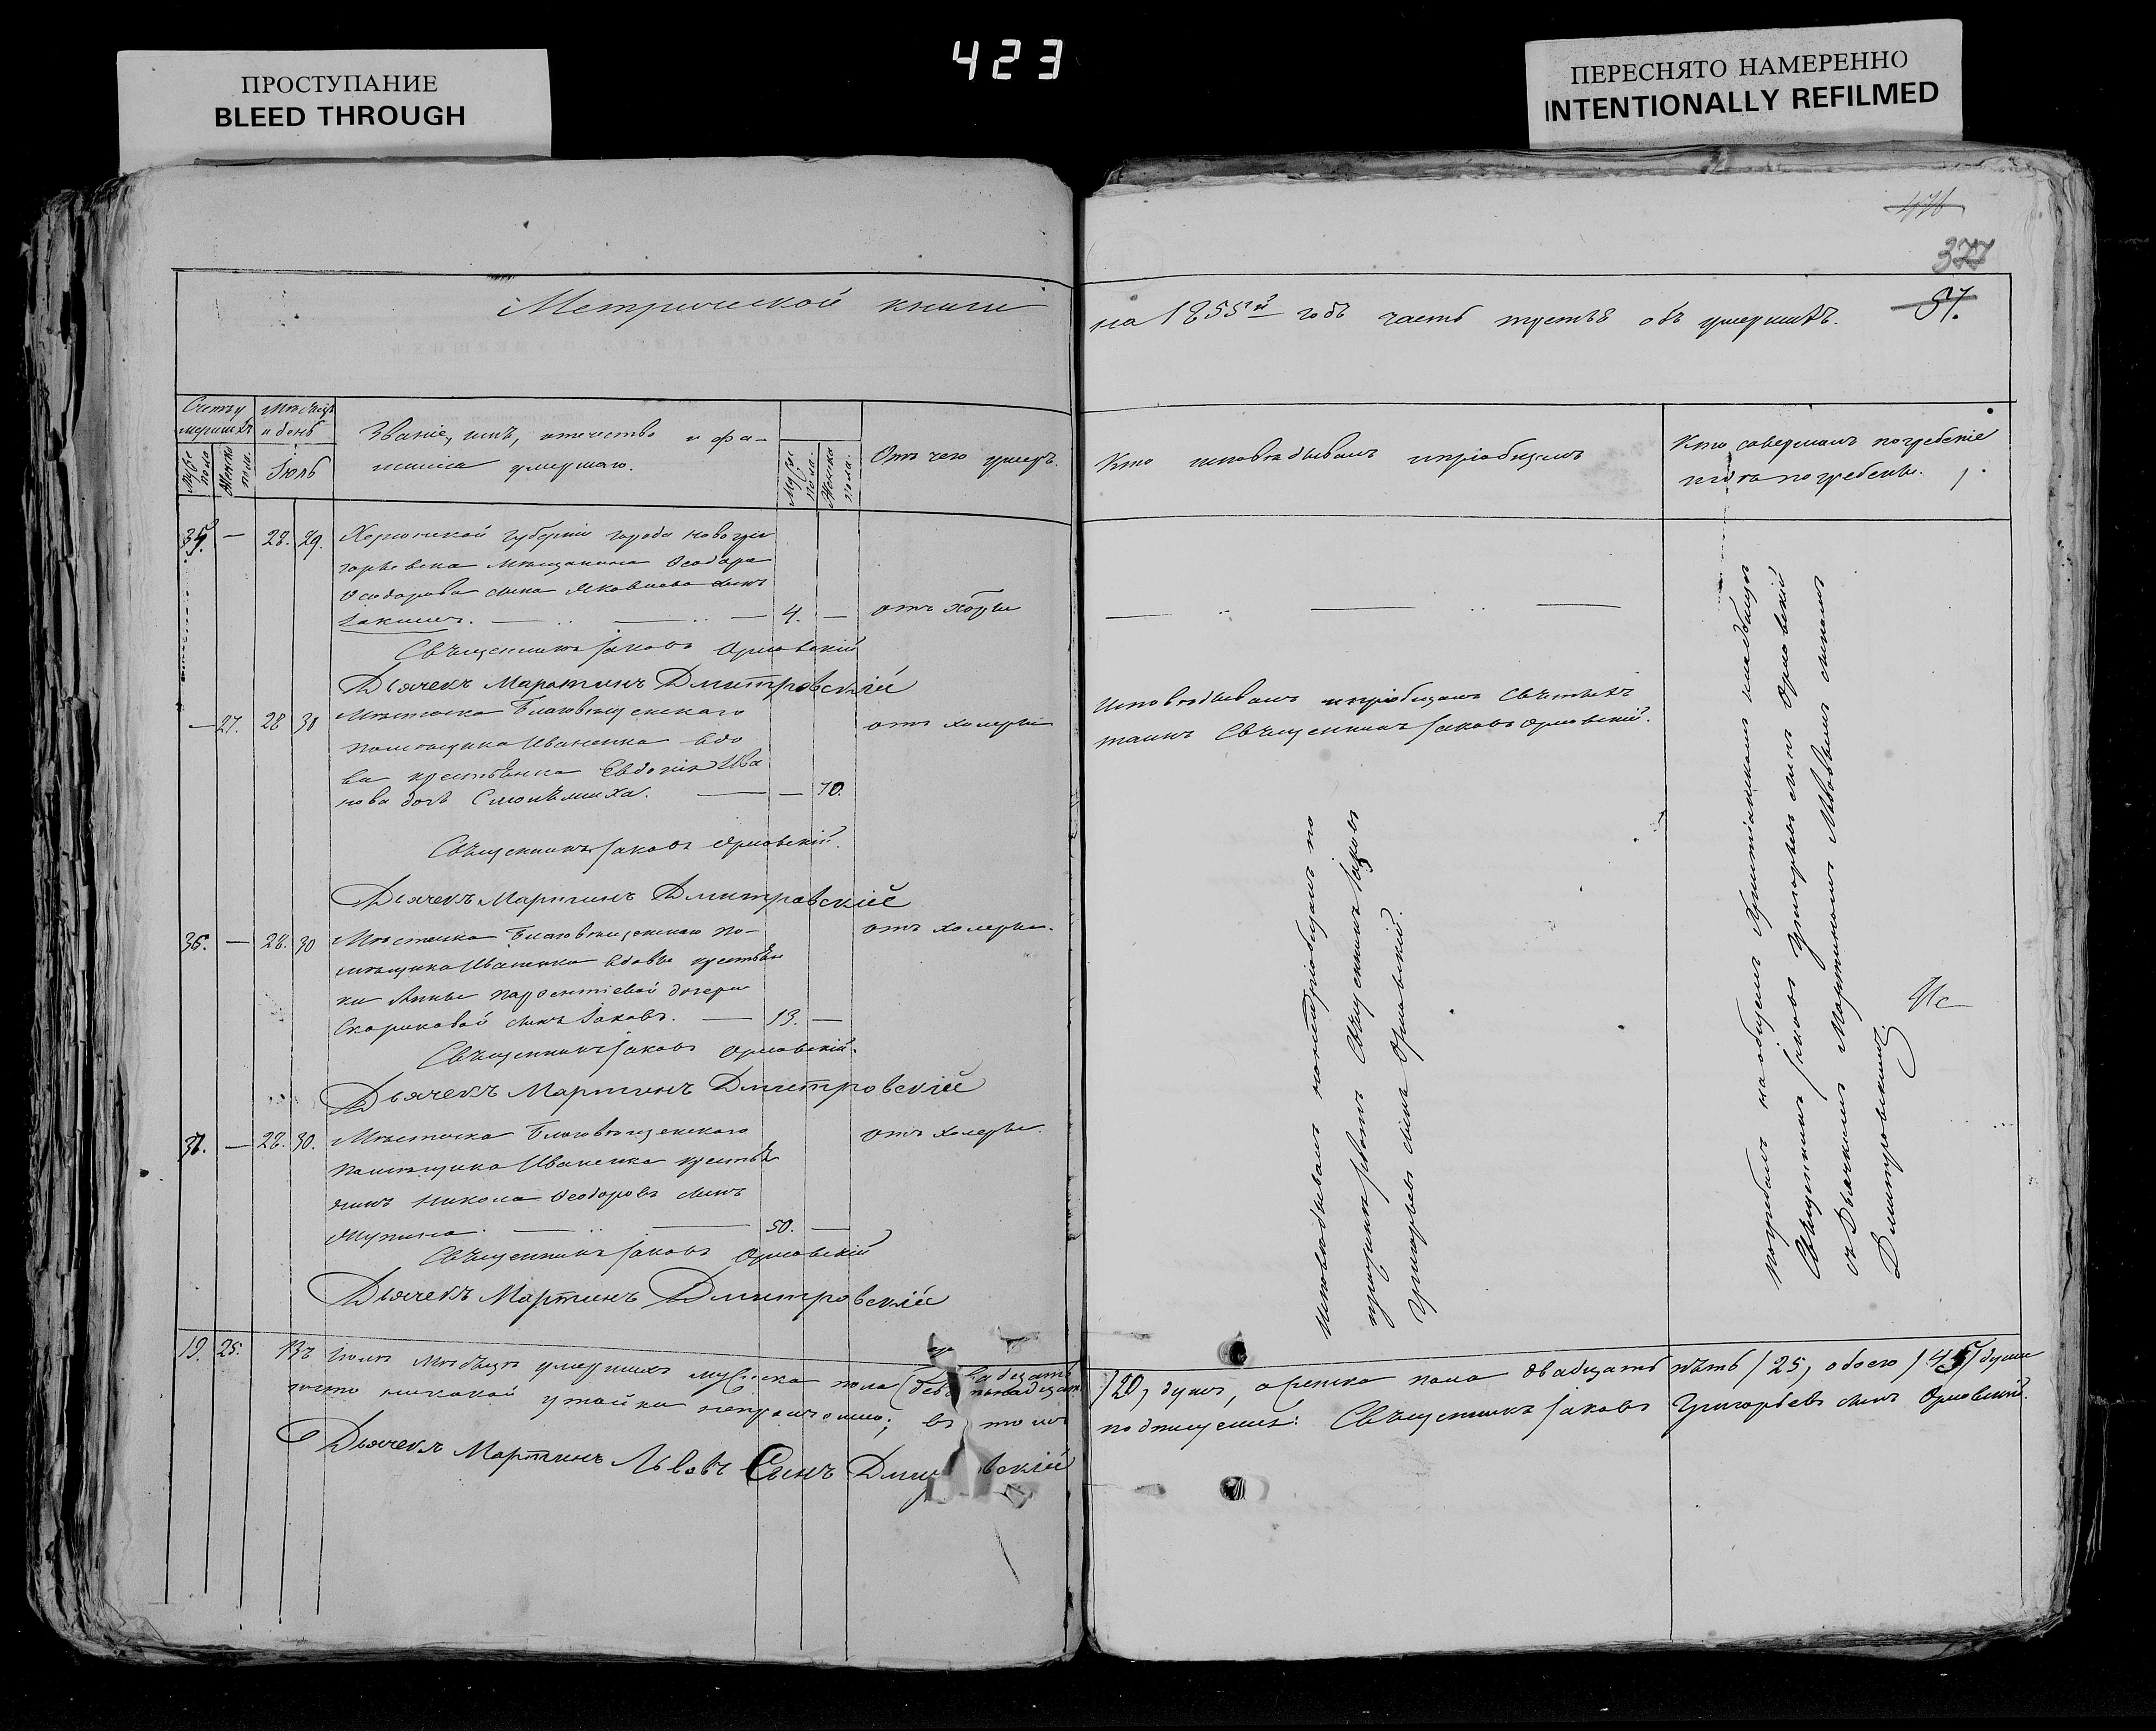 423
ПРОСТУПАНИЕ
BLEED THROUGH
ПЕРЕСНЯТО НАМЕРЕННО
INTENTIONALLY REFILMED
377
Метрической книги
на 1855й годъ часть третья объ умершихъ.
57.
Счетъ у
мершихъ
Мѣсяцъ
и день
Муже
пола
Женска
пола.
Іюль
Званіе, имя, отечество и фа-
милія умершаго.
Муже
пола.
Женска
пола.
Отъ чего умеръ.
Кто исповѣдывалъ и пріобщалъ
Кто совершалъ погребеніе
и гдѣ погребены.
35. — 28. 29. Херсонской Губерніи города Новогри
горьевска мѣщанина Ѳеодора
Ѳеодорова сына Яковлева сынъ
Іакимъ. — 4. — отъ
Священникъ Іаковъ Орловскій
Дьячекъ Мартинъ Дмитровскій
— 27. 28 30 Мѣстечка Благовѣщенскаго
помѣщика Иваненка вдо
ва крестьянка Евдокія Ива
нова дочь — — 70.
отъ холеры
Исповѣдывалъ и пріобщалъ Святыхъ
таинъ Священникъ Іаковъ Орловскій.
Священникъ Іаковъ Орловскій.
Дьячекъ Мартинъ Дмитровскій
36. — 28. 30 Мѣстечка Благовѣщенскаго по-
мѣщика Иваненка вдовы крестьян
ки Анны дочери
Скориковой сынъ Іаковъ. — 13. —
отъ холеры.
Священникъ Іаковъ Орловскій.
Дьячекъ Мартинъ Дмитровскій
37. — 28. 30. Мѣстечка Благовѣщенскаго
помѣщика Иваненка крестья
нинъ Никола Ѳеодоровъ сынъ
— 50. —
отъ холеры.
Священникъ Іаковъ Орловскій
Дьячекъ Мартинъ Дмитровскій
Исповѣдывалъ
Священникъ Іаковъ
Григорьевъ сынъ Орловскій.
Погребалъ на общемъ кладбищѣ
Священникъ Іаковъ Григорьевъ сынъ Орловскій
съ Дьячкомъ Мартиномъ Львовымъ сыномъ
Дмитровскимъ.
19. 25. Въ Іюлѣ мѣсяцѣ умершихъ мужеска пола
/20/ душъ, а женска пола двадцать пять /25/, обоего /45/ душъ
что никакой утайки; въ томъ
подписуемся: Священникъ Іаковъ Григорьевъ сынъ Орловскій.
Дьячекъ Мартинъ Львовъ Сынъ